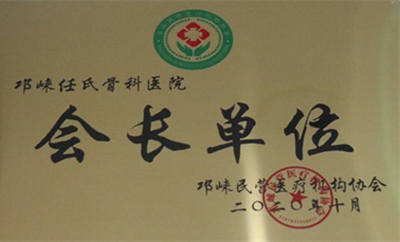 邛崃任氏骨科医院
会长单位
邛崃民营医疗机构协会
二〇二〇年十月